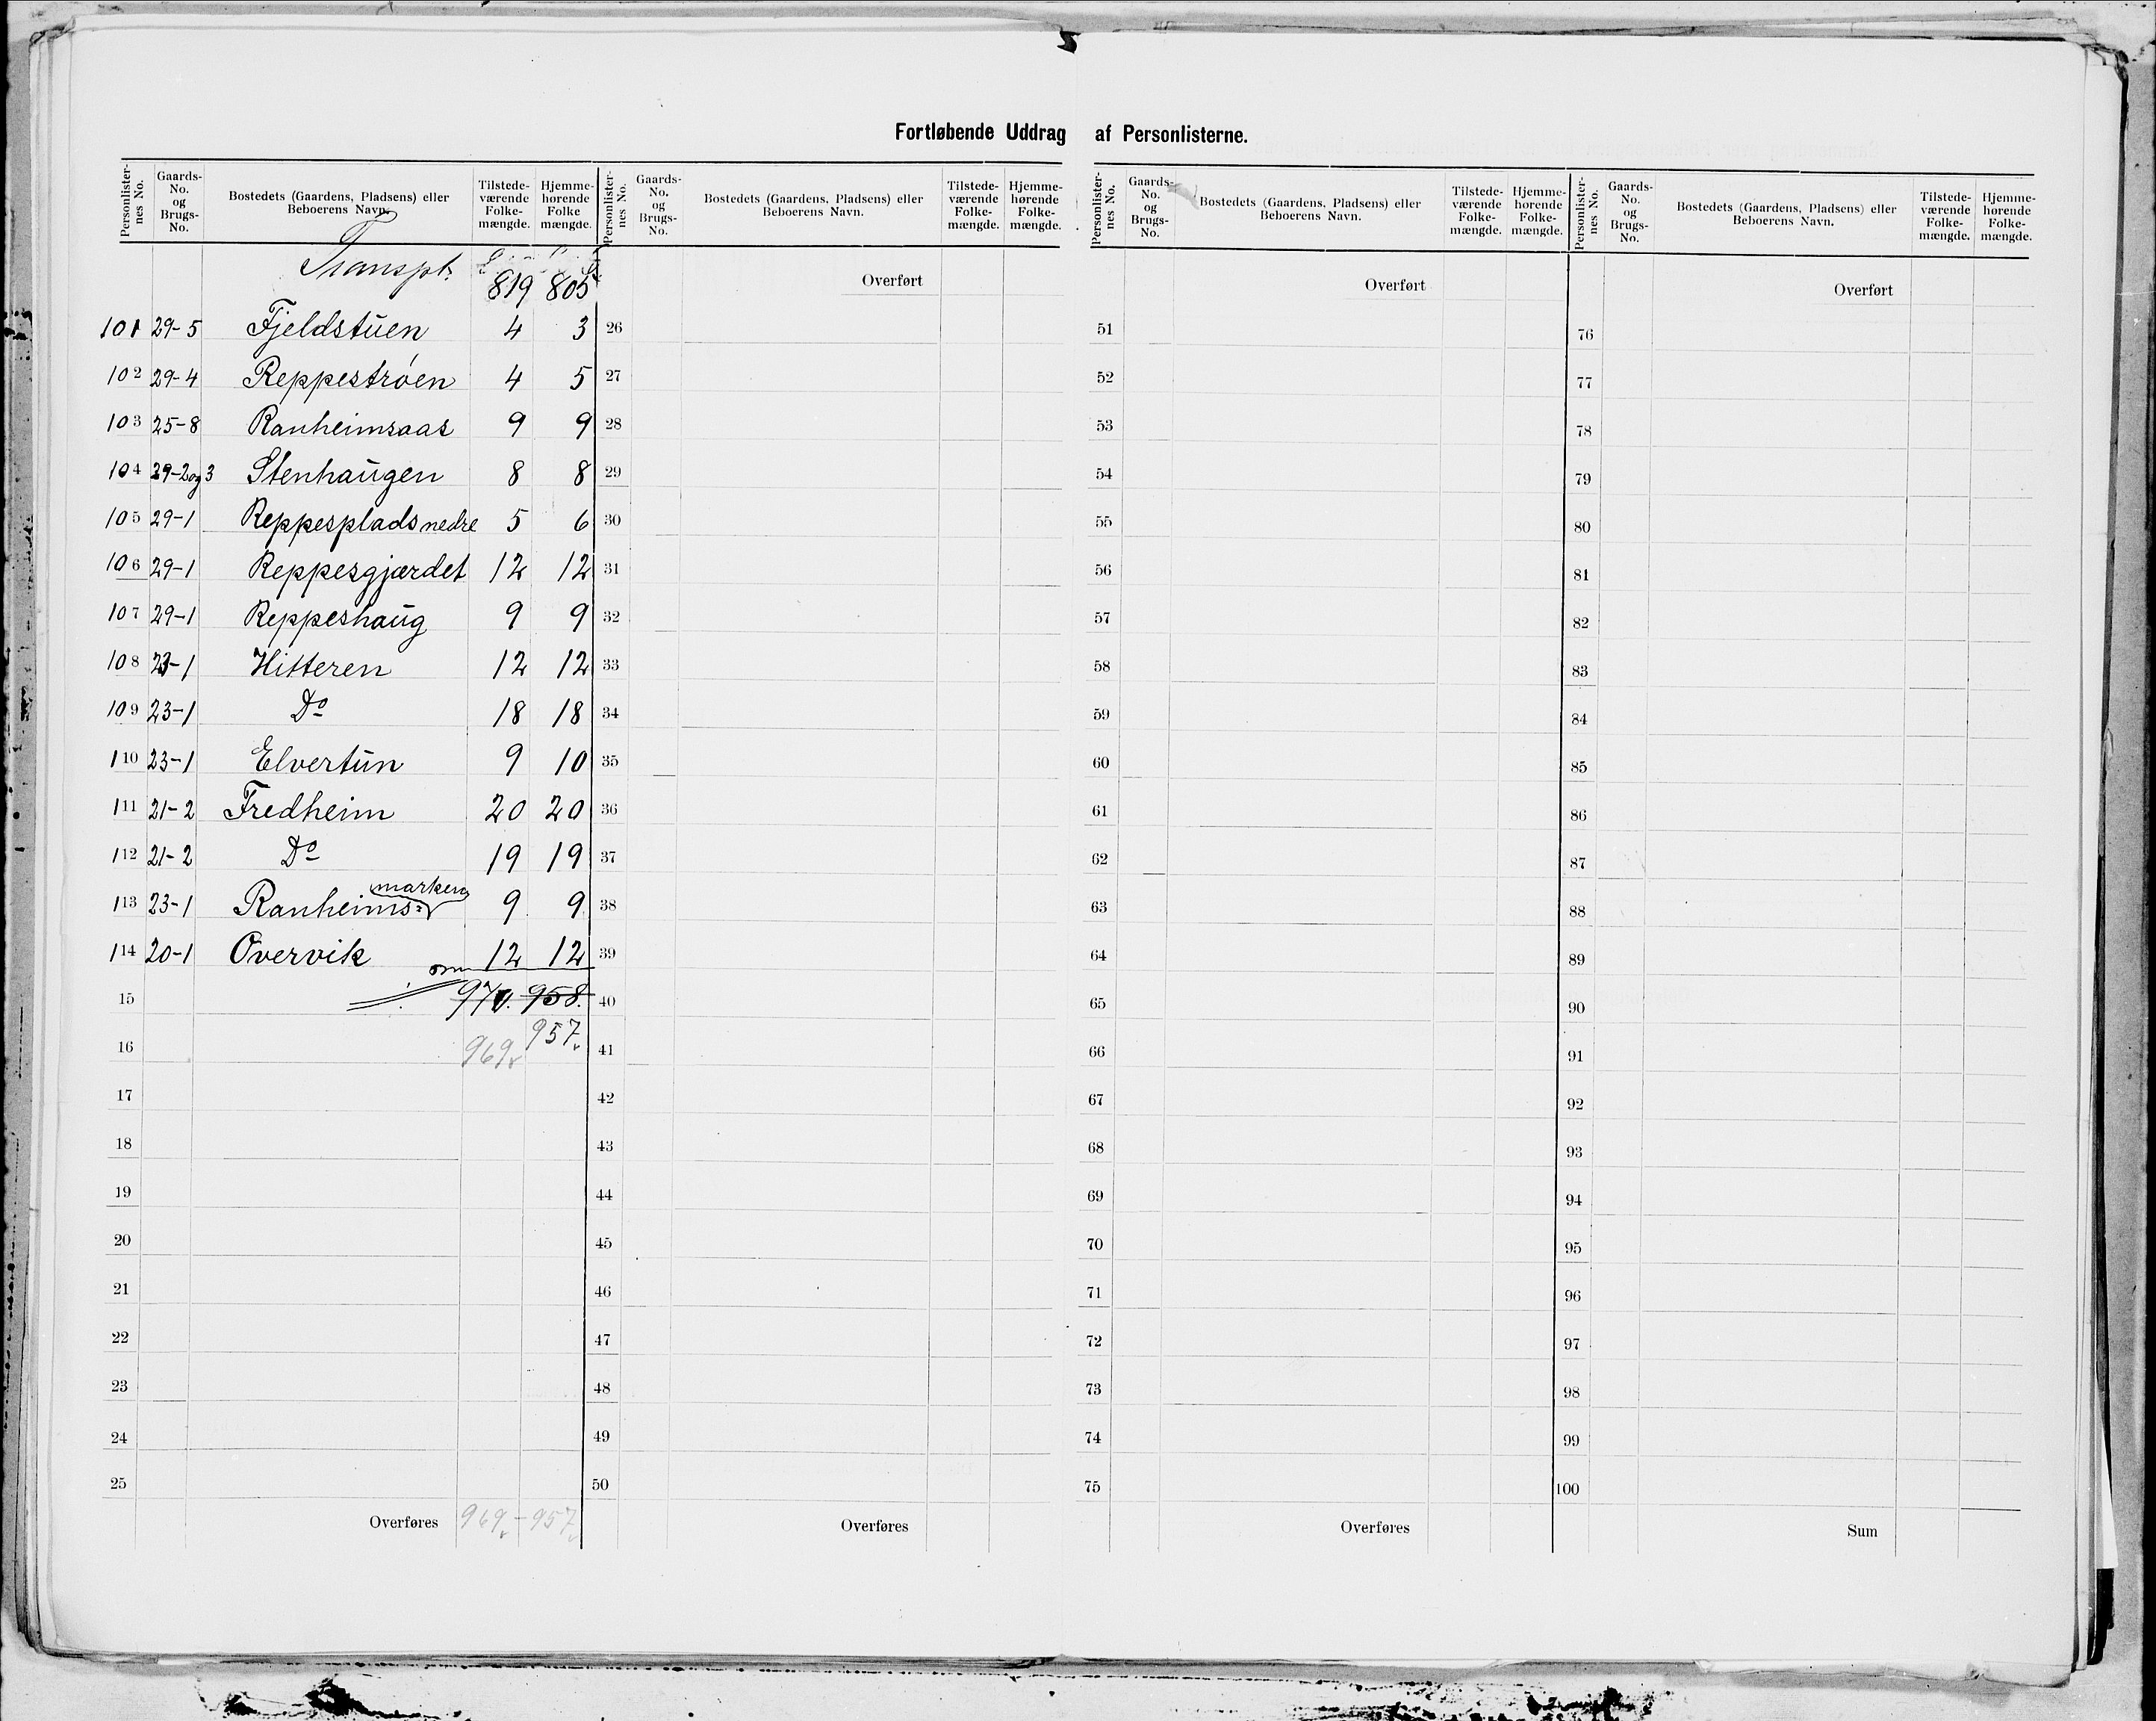 Fortløbende Uddrag af Personlisterne.
Personlisternes No. Gaards-No. og Brugs-No. Bostedets (Gaardens, Pladsens) eller Beboerens Navn. Tilstedeværende Folkemængde. Hjemmehørende Folkemængde.
Personlisternes No. Gaards-No. og Brugs-No. Bostedets (Gaardens, Pladsens) eller Beboerens Navn. Tilstedeværende Folkemængde. Hjemmehørende Folkemængde.
Personlisternes No. Gaards-No. og Brugs-No. Bostedets (Gaardens, Pladsens) eller Beboerens Navn. Tilstedeværende Folkemængde. Hjemmehørende Folkemængde.
Personlisternes No. Gaards-No. og Brugs-No. Bostedets (Gaardens, Pladsens) eller Beboerens Navn. Tilstedeværende Folkemængde. Hjemmehørende Folkemængde.
Transpt. 819 805 Overført Overført Overført
101 29-5 Fjeldstuen 4 3 26 51 76
102 29-4 Reppestrøen 4 5 27 52 77
103 25-8 Ranheimsaas 9 9 28 53 78
104 29-2og3 Stenhaugen 8 8 29 54 79
105 29-1 Reppesplads nedre 5 6 30 55 80
106 29-1 Reppesgjærdet 12 12 31 56 81
107 29-1 Reppeshaug 9 9 32 57 82
108 23-1 Hitteren 12 12 33 58 83
109 23-1 Do 18 18 34 59 84
110 23-1 Elvertun 9 10 35 60 85
111 21-2 Fredheim 20 20 36 61 86
112 21-2 Do 19 19 37 62 87
113 23-1 Ranheims-marken 9 9 38 63 88
114 20-1 Overvik 12 12 39 64 89
15 970. 958. 40 65 90
16 969 957. 41 66 91
17 42 67 92
18 43 68 93
19 44 69 94
20 45 70 95
21 46 71 96
22 47 72 97
23 48 73 98
24 49 74 99
25 50 75 100
Overføres 969-957 Overføres Overføres Sum